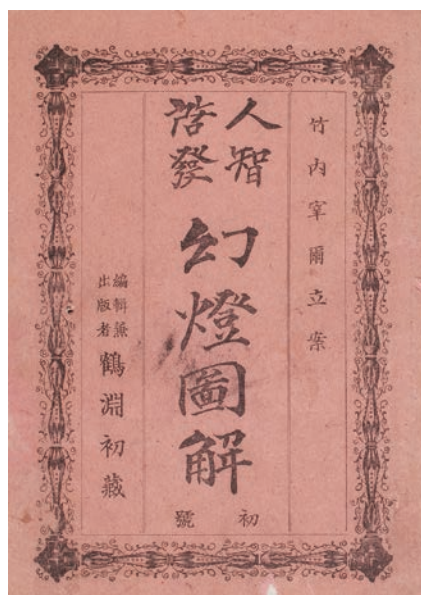 竹内宰爾立案
人智
啓發
幻燈圖解
初號
編輯兼
出版者
鶴淵初蔵